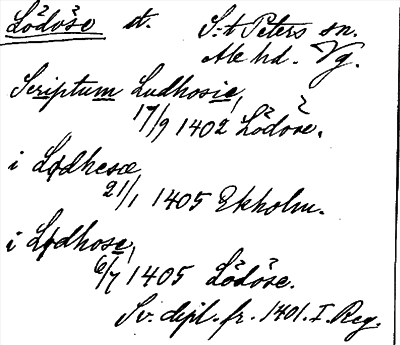 Lödöse st. S:t Peters sn.
Ale hd. Vg.
Scriptum Ludhosie,
17/9 1402 Lödöse.
i Lødhesæ
21/1 1405 Ekholm.
i Lødhose,
6/7 1405 Lödöse.
Sv. dipl. fr. 1401. I. Reg.